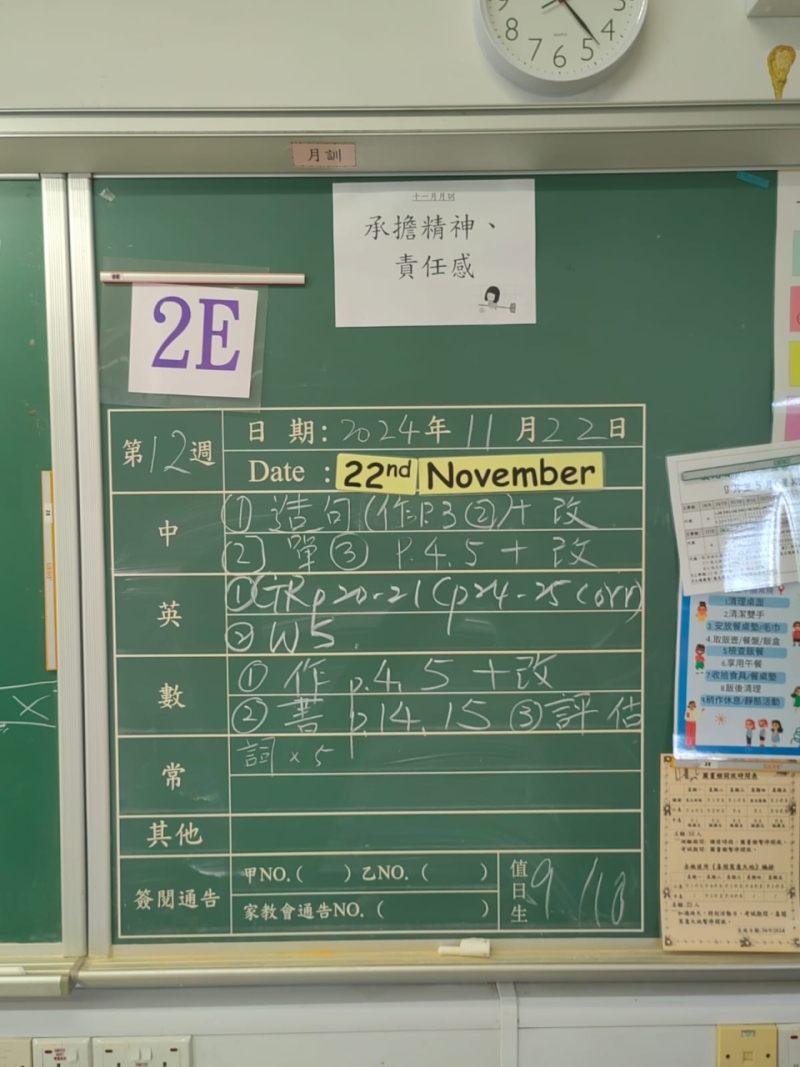 8
4
7
6
5
月訓
十一月月訓
承擔精神、
責任感
2E
第12週
日 期：2024年11月22日
Date : 22nd November
中
① 造句(作P.3②)+改
② 單③ P.4.5+改
英
①GRp20-21(p24-25 corr)
② W5.
數
① 作 p.4. 5 +改
② 書 p.14. 15 ③評估
常
詞×5
其他
簽閱通告
甲NO.( ) 乙NO.( )
家教會通告NO.( )
值日生
1.清理桌面
2.清潔雙手
3.安放餐桌墊/毛巾
4.取飯壺/餐盤/飯盒
5.檢查飯餐
6.享用午餐
7.收拾食具/餐桌墊
8.飯後清理
9.稍作休息/靜態活動